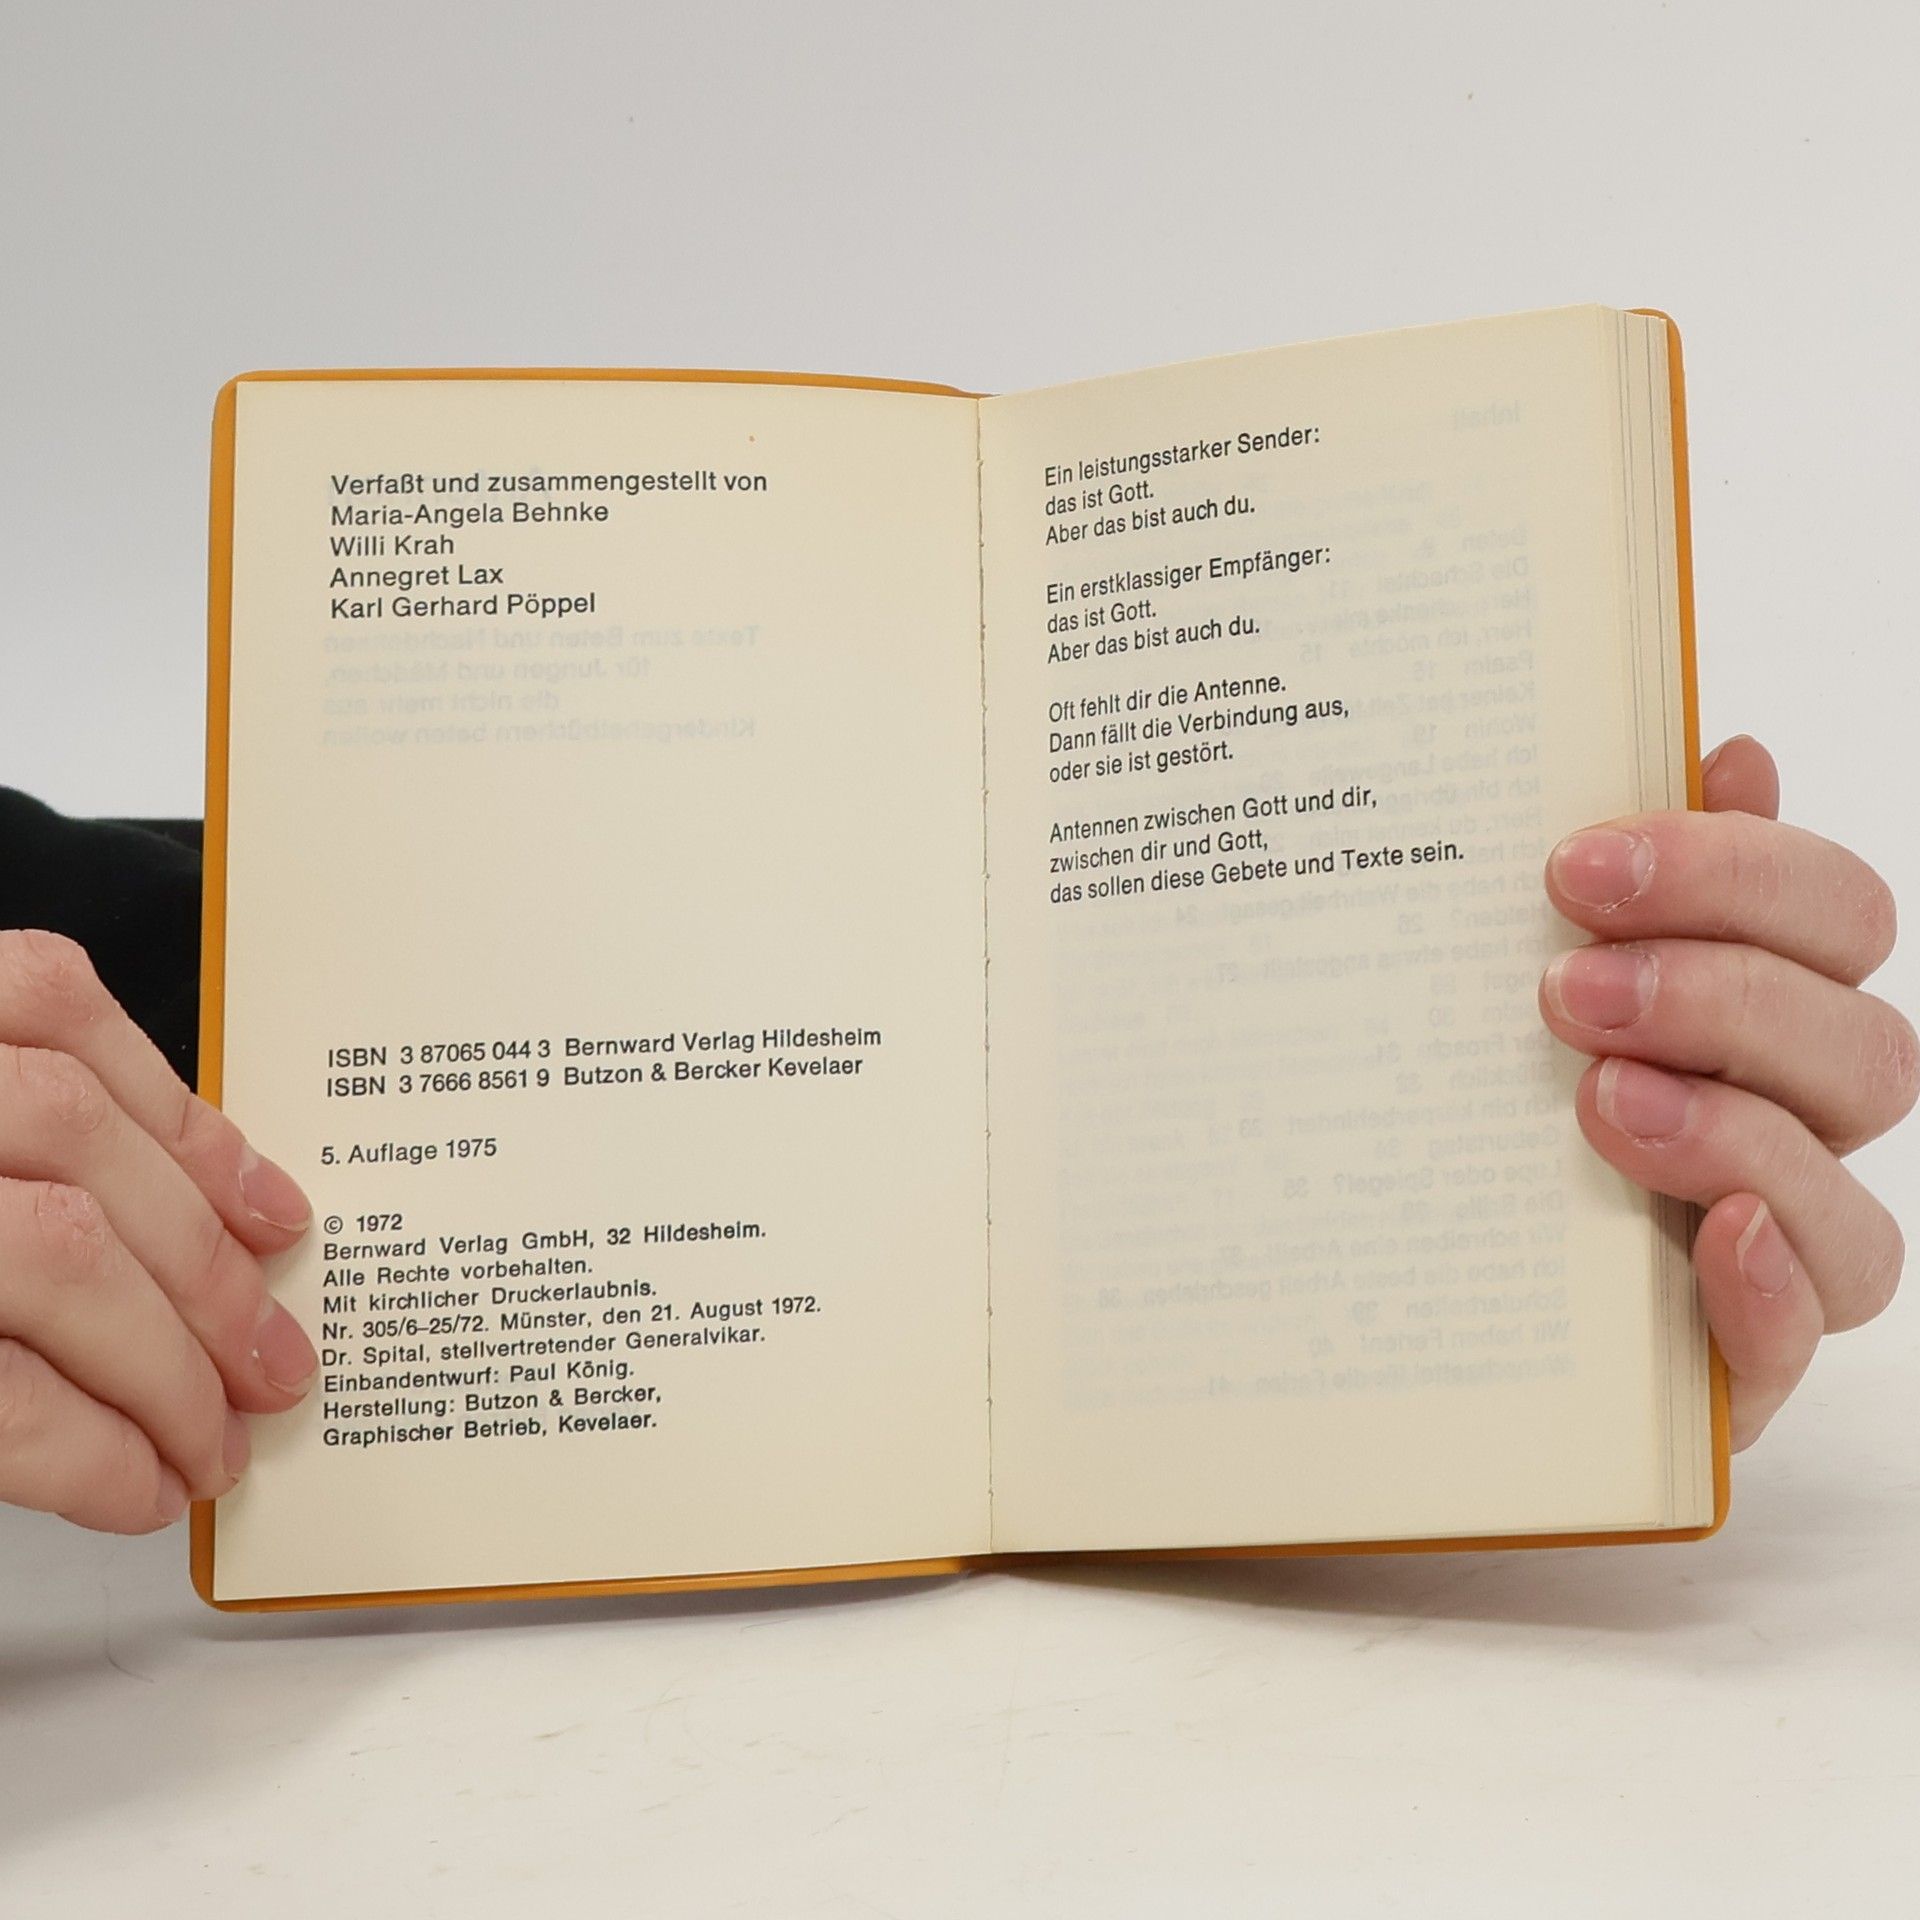 Verfaßt und zusammengestellt von
Maria-Angela Behnke
Willi Krah
Annegret Lax
Karl Gerhard Pöppel
ISBN 3 87065 044 3 Bernward Verlag Hildesheim
ISBN 3 7666 8561 9 Butzon & Bercker Kevelaer
5. Auflage 1975
© 1972
Bernward Verlag GmbH, 32 Hildesheim.
Alle Rechte vorbehalten.
Mit kirchlicher Druckerlaubnis.
Nr. 305/6–25/72. Münster, den 21. August 1972.
Dr. Spital, stellvertretender Generalvikar.
Einbandentwurf: Paul König.
Herstellung: Butzon & Bercker,
Graphischer Betrieb, Kevelaer.
Ein leistungsstarker Sender:
das ist Gott.
Aber das bist auch du.
Ein erstklassiger Empfänger:
das ist Gott.
Aber das bist auch du.
Oft fehlt dir die Antenne.
Dann fällt die Verbindung aus,
oder sie ist gestört.
Antennen zwischen Gott und dir,
zwischen dir und Gott,
das sollen diese Gebete und Texte sein.